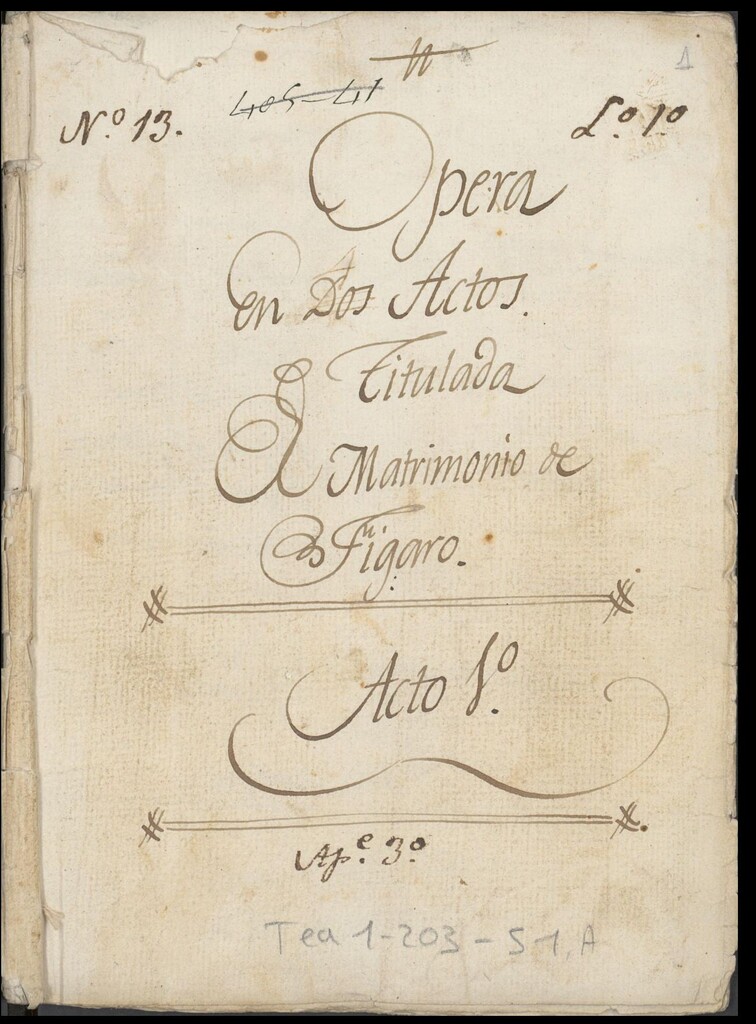 n
1
Nº 13.
405-41
Lº 1º
Opera
en Dos Actos.
Titulada
El Matrimonio de
Figaro.
Acto 1º.
Apº. 3º
Tea 1-203-51, A